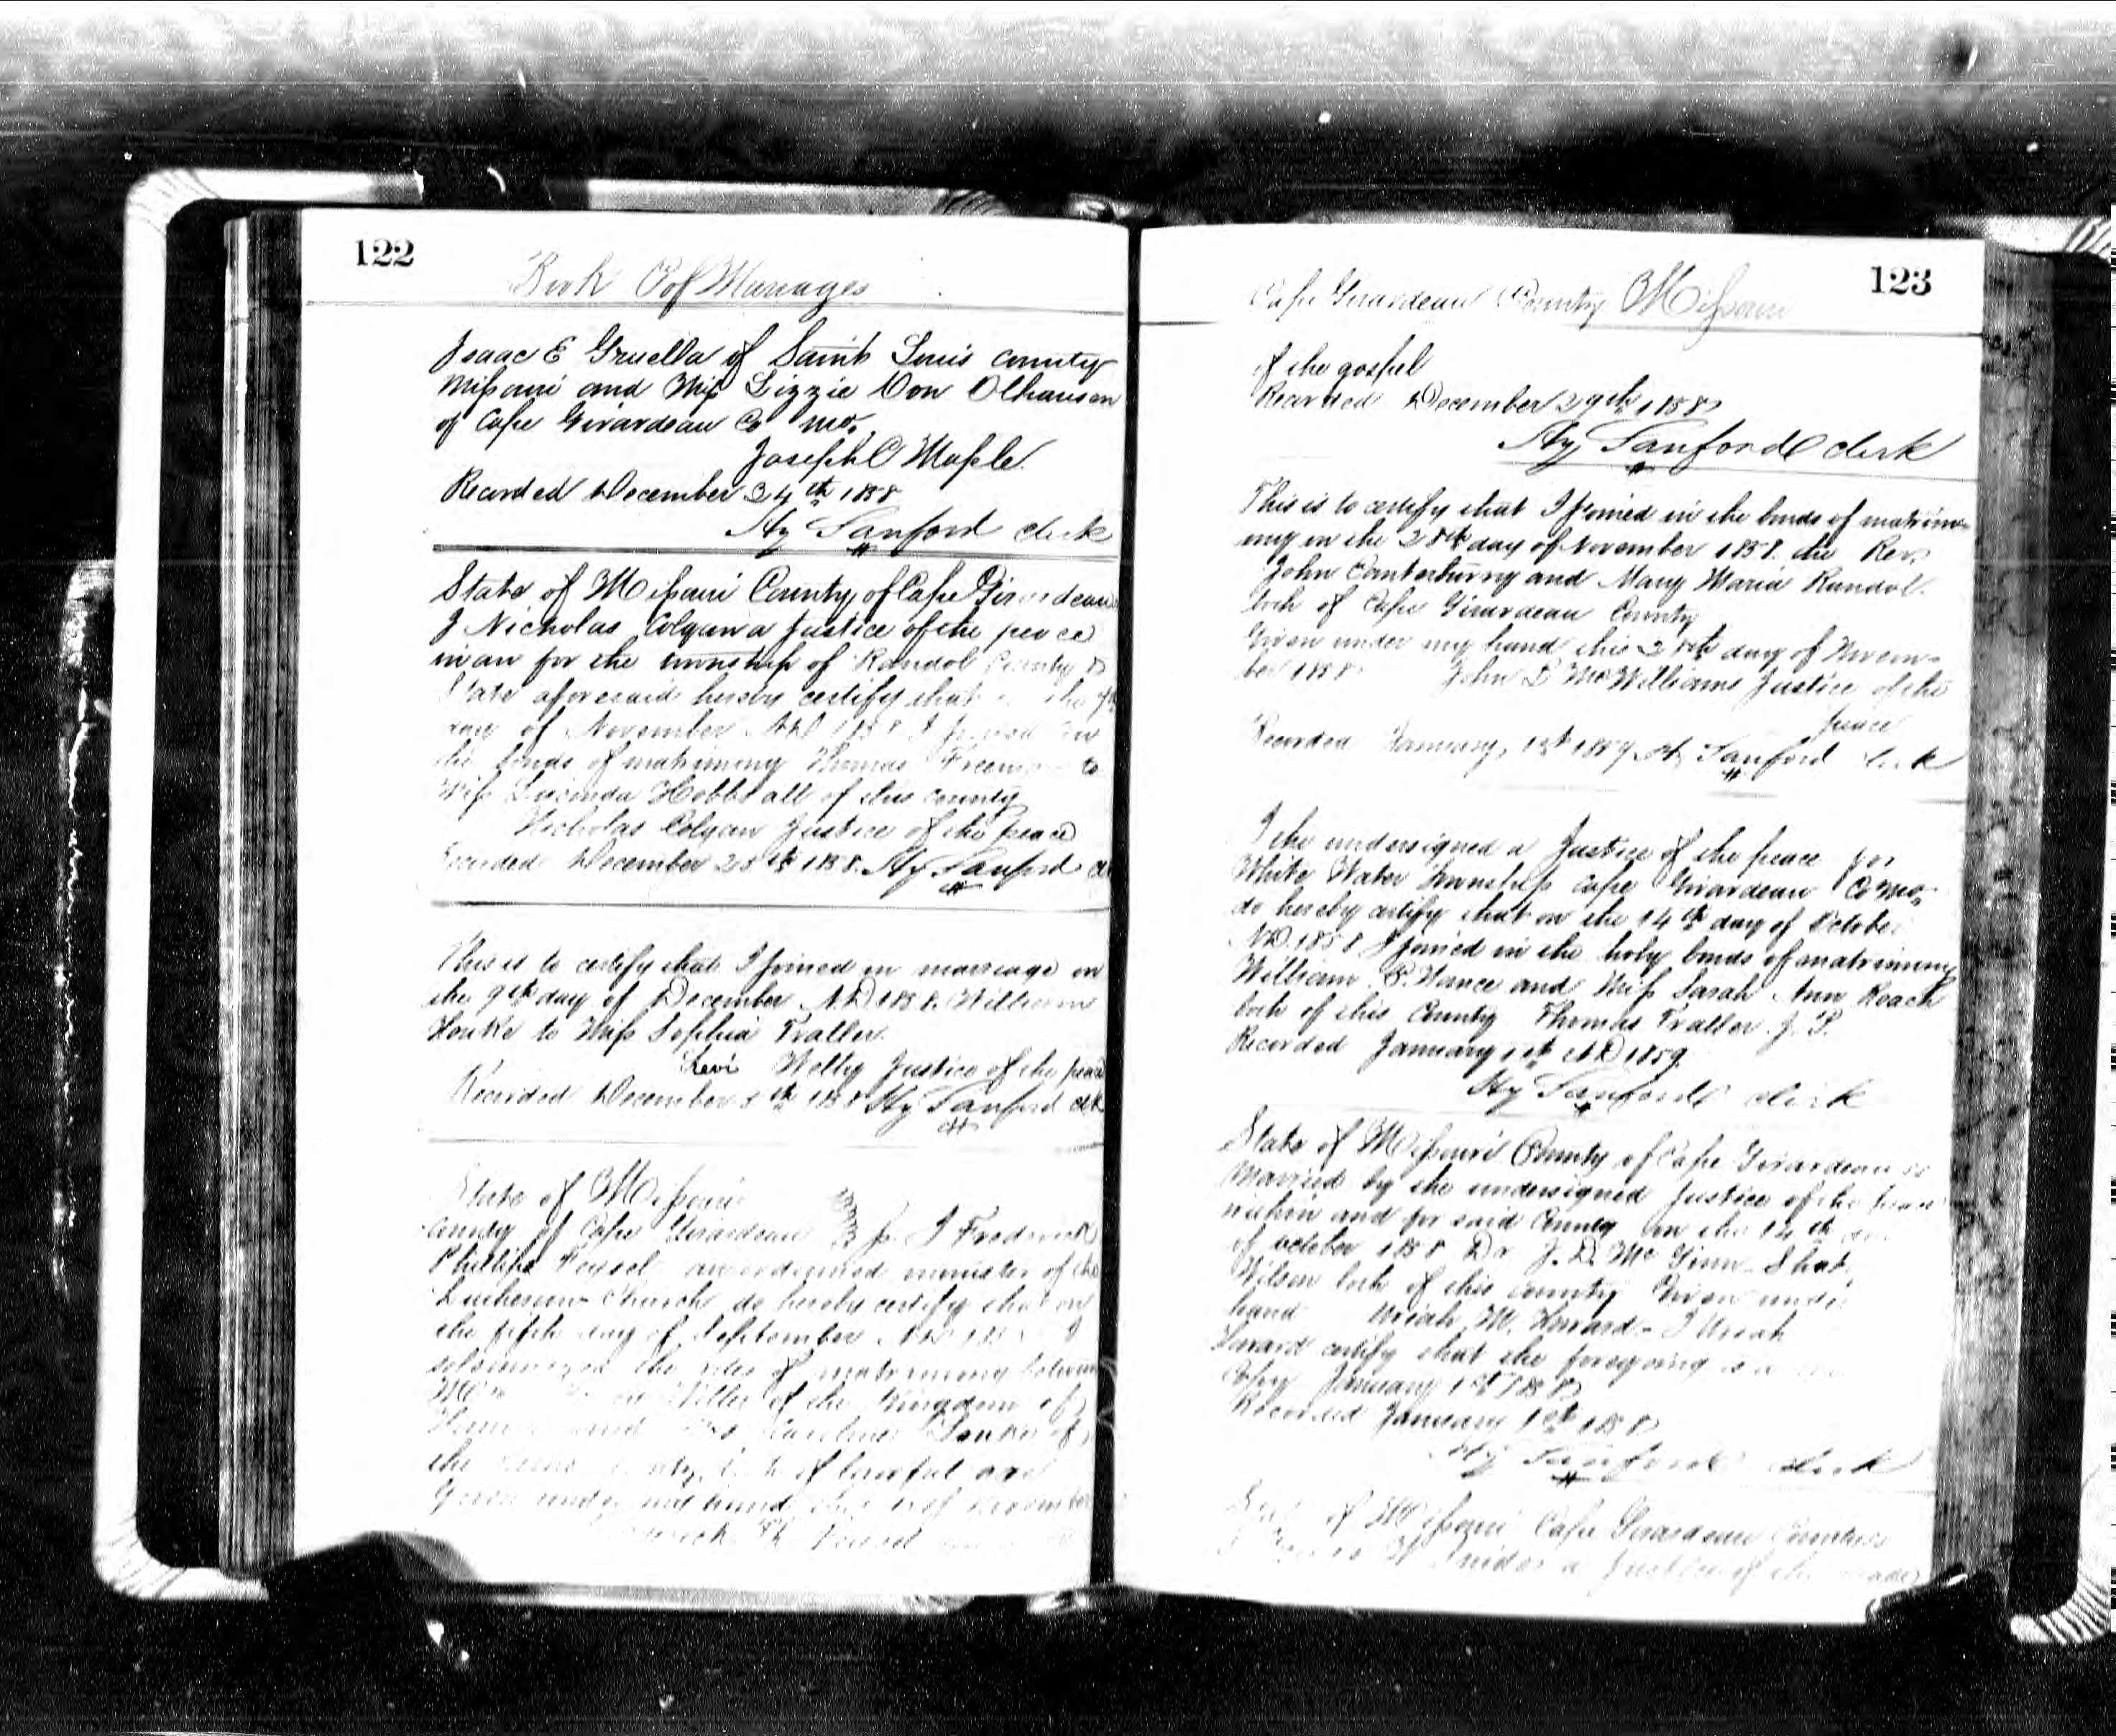 122
Book of Marriages
Isaac E Gruella of Saint Louis county
Missouri and Miss Lizzie Von Olhausen
of Cape Girardeau Co Mo.
Joseph C Maple
Recorded December 24th 1858
Hy Sanford clerk
State of Missouri County of Cape Girardeau
I Nicholas Colyan a Justice of the peace
in an for the township of Randol County &
State aforesaid hereby certify that the 9th
day of November AD 1858 I joined in
the bonds of matrimony Thomas to
Miss Lucinda Hobbs all of this county
Nicholas Colyan Justice of the peace
Recorded December 28th 1858. Hy Sanford
This is to certify that I joined in marriage on
the 9th day of December A.D 1858. William
Houke to Miss Sophia Traller.
Levi Welby Justice of the peace
Recorded December 8th 1858 Hy Sanford clk
State of Missouri
County of Cape Girardeau I Frederick
Phillip an ordained minister of the
Lutheran Church do hereby certify that on
the fifth day of September AD
solemnized the rites of matrimony between
Miller of the Kingdom of
and Caroline of
the of lawful age
Given under my hand this of November
123
Cape Girardeau County Missouri
of the gospel
Recorded December 29th 1858
Hy Sanford clerk
This is to certify that I joined in the bonds of matrimo-
ny in the 28th day of November 1858. the Rev.
John Canterburry and Mary Maria Randol.
both of Cape Girardeau County
Given under my hand this 28th day of Novem-
ber 1858 John D McWilliams Justice of the
peace
Recorded January, 1st 1859 Hy Sanford clerk
I the undersigned a Justice of the peace for
White Water Township Cape Girardeau Co Mo.
do hereby certify that on the 14th day of October
AD. 1858 I joined in the holy bonds of matrimony
William P. Vance and Miss Sarah Ann Roach
both of this County Thomas Traller J. P.
Recorded January 1st AD 1859.
Hy Sanford clerk
State of Missouri County of Cape Girardeau ss
Married by the undersigned Justice of the peace
within and for said County on the 14th day
of october 1858 Dr J. D. Mc Ginn
Wilson both of this county Given under
hand Uriah M. Howard - I Uriah
Howard certify that the foregoing is a
Copy January 1st 1858
Recorded January 1st 1858
Hy Sanford clerk
State of Missouri Cape Girardeau County ss
a Justice of the peace